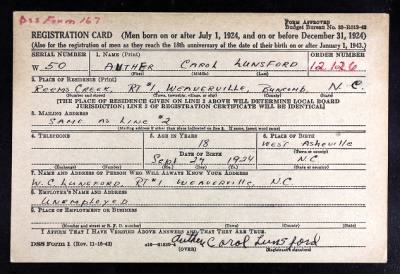 DSS Form 167
Form Approved
Budget Bureau No. 33-R013-42
REGISTRATION CARD (Men born on or after July 1, 1924, and on or before December 31, 1924)
(Also for the registration of men as they reach the 18th anniversary of the date of their birth on or after January 1, 1943.)
SERIAL NUMBER 1. NAME (Print) ORDER NUMBER
W 50 AUTHER CAROL LUNSFORD 12126
(First) (Middle) (Last)
2. PLACE OF RESIDENCE (Print)
REEMS CREEK, RT #1 WEAVERVILLE, BUNCOMB, N.C.
(Number and street) (Town, township, village, or city) (County) (State)
[THE PLACE OF RESIDENCE GIVEN ON LINE 2 ABOVE WILL DETERMINE LOCAL BOARD
JURISDICTION; LINE 2 OF REGISTRATION CERTIFICATE WILL BE IDENTICAL]
3. MAILING ADDRESS
SAME AS LINE #2
[Mailing address if other than place indicated on line 2. If same, insert word same]
4. TELEPHONE 5. AGE IN YEARS 6. PLACE OF BIRTH
18 WEST Asheville
DATE OF BIRTH (Town or county)
Sept 27 1924 N.C
(Exchange) (Number) (Mo.) (Day) (Yr.) (State or country)
7. NAME AND ADDRESS OF PERSON WHO WILL ALWAYS KNOW YOUR ADDRESS
W.C. LUNSFORD, RT #1 WEAVERVILLE, N.C
8. EMPLOYER'S NAME AND ADDRESS
UNEMPLOYED
9. PLACE OF EMPLOYMENT OR BUSINESS
(Number and street or R. F. D. number) (Town) (County) (State)
I AFFIRM THAT I HAVE VERIFIED ABOVE ANSWERS AND THAT THEY ARE TRUE.
DSS Form 1 (Rev. 11-16-42) (OVER) Auther Carol Lunsford
(Registrant's signature)